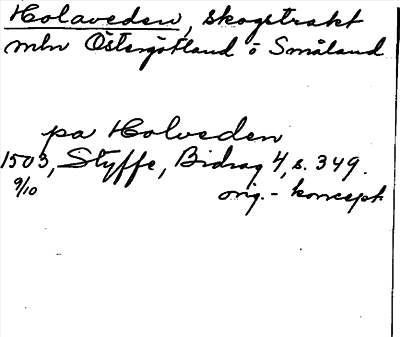 Holaveden, skogstrakt
mln Östergötland o Småland
pa Holveden
1503, Styffe, Bidrag 4, s. 349.
9/10 orig. - koncept